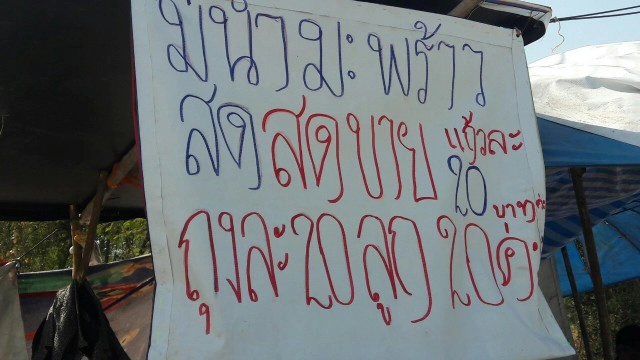 มีน้ำมะพร้าว
สดสดขาย แก้วละ
20 บาทค่ะ
ถุงละ 20 ลูก 20 ค่ะ